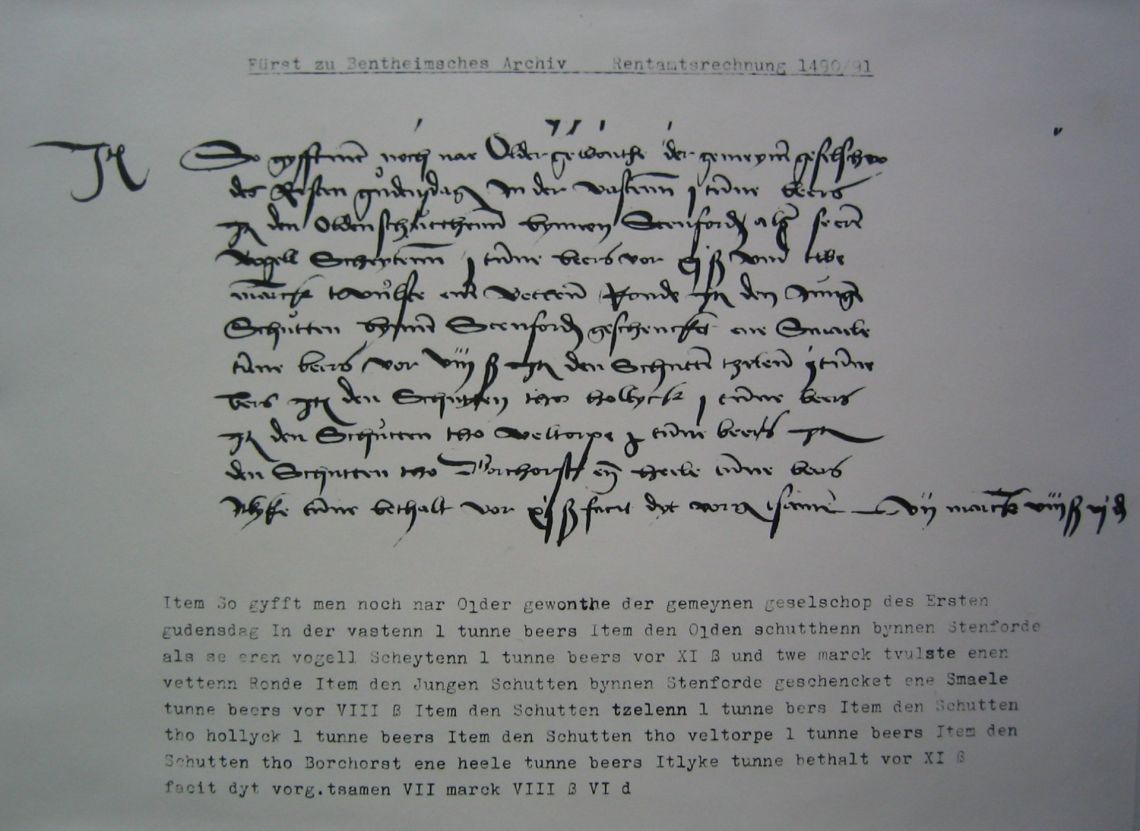 Fürst zu Bentheimsches Archiv Rentamtsrechnung 1490/91
Itm So gyfft men noch nar Older gewonthe der gemeynen geselschop
des Ersten gudensdag In der vastenn j tunne beers
Itm den Olden schutthenn bynnen Stenforde als se eren
vogell Scheytenn j tunne beers vor xj ß und twe
marck tvulste enen vettenn Ronde Itm den Jungen
Schutten bynnen Stenforde geschencket ene Smaele
tunne beers vor viij ß Itm den Schutten tzelenn j tunne
bers Itm den Schutten tho hollyck j tunne beers
Itm den Schutten tho veltorpe j tunne beers Itm
den Schutten tho Borchorst ene heele tunne beers
Itlyke tunne bethalt vor xj ß facit dyt vorg tsamen vij marck viij ß vj d
Item So gyfft men noch nar Older gewonthe der gemeynen geselschop des Ersten
gudensdag In der vastenn 1 tunne beers Item den Olden schutthenn bynnen Stenforde
als se eren vogell Scheytenn 1 tunne beers vor XI ß und twe marck tvulste enen
vettenn Ronde Item den Jungen Schutten bynnen Stenforde geschencket ene Smaele
tunne beers vor VIII ß Item den Schutten tzelenn 1 tunne bers Item den Schutten
tho hollyck 1 tunne beers Item den Schutten tho veltorpe 1 tunne beers Item den
Schutten tho Borchorst ene heele tunne beers Itlyke tunne bethalt vor XI ß
facit dyt vorg.tsamen VII marck VIII ß VI d